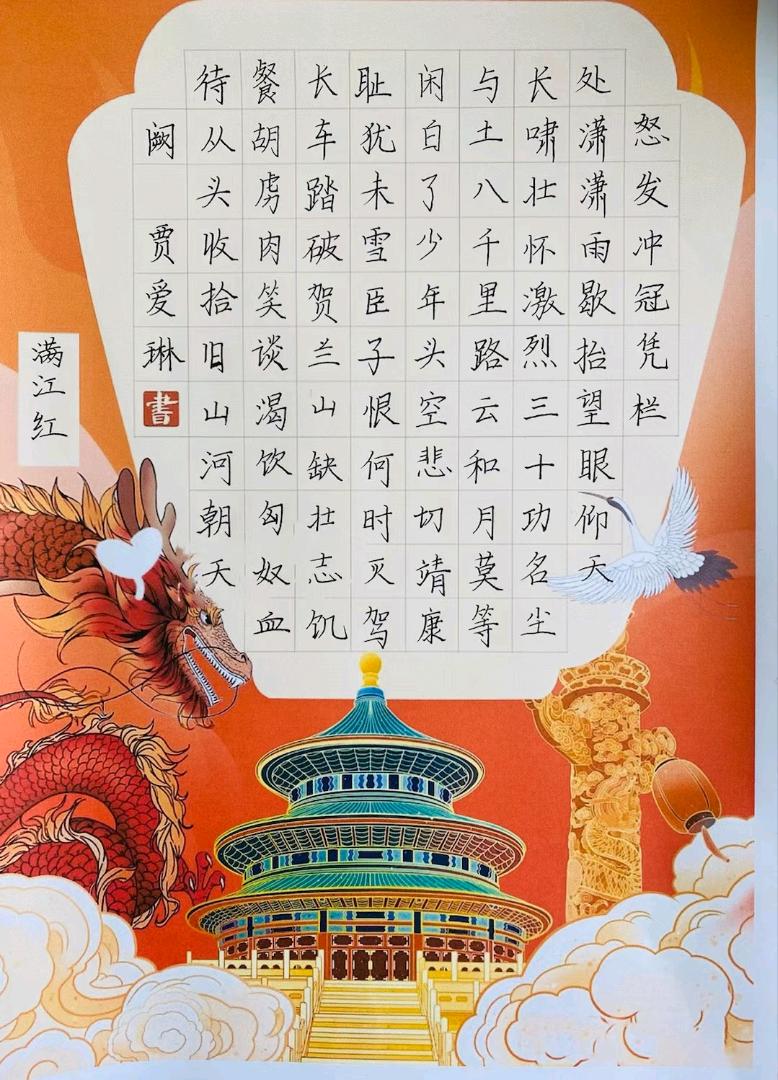 怒发冲冠凭栏
处潇潇雨歇抬望眼仰天
长啸壮怀激烈三十功名尘
与土八千里路云和月莫等
闲白了少年头空悲切靖康
耻犹未雪臣子恨何时灭驾
长车踏破贺兰山缺壮志饥
餐胡虏肉笑谈渴饮匈奴血
待从头收拾旧山河朝天
阙 贾爱琳 書
满江红